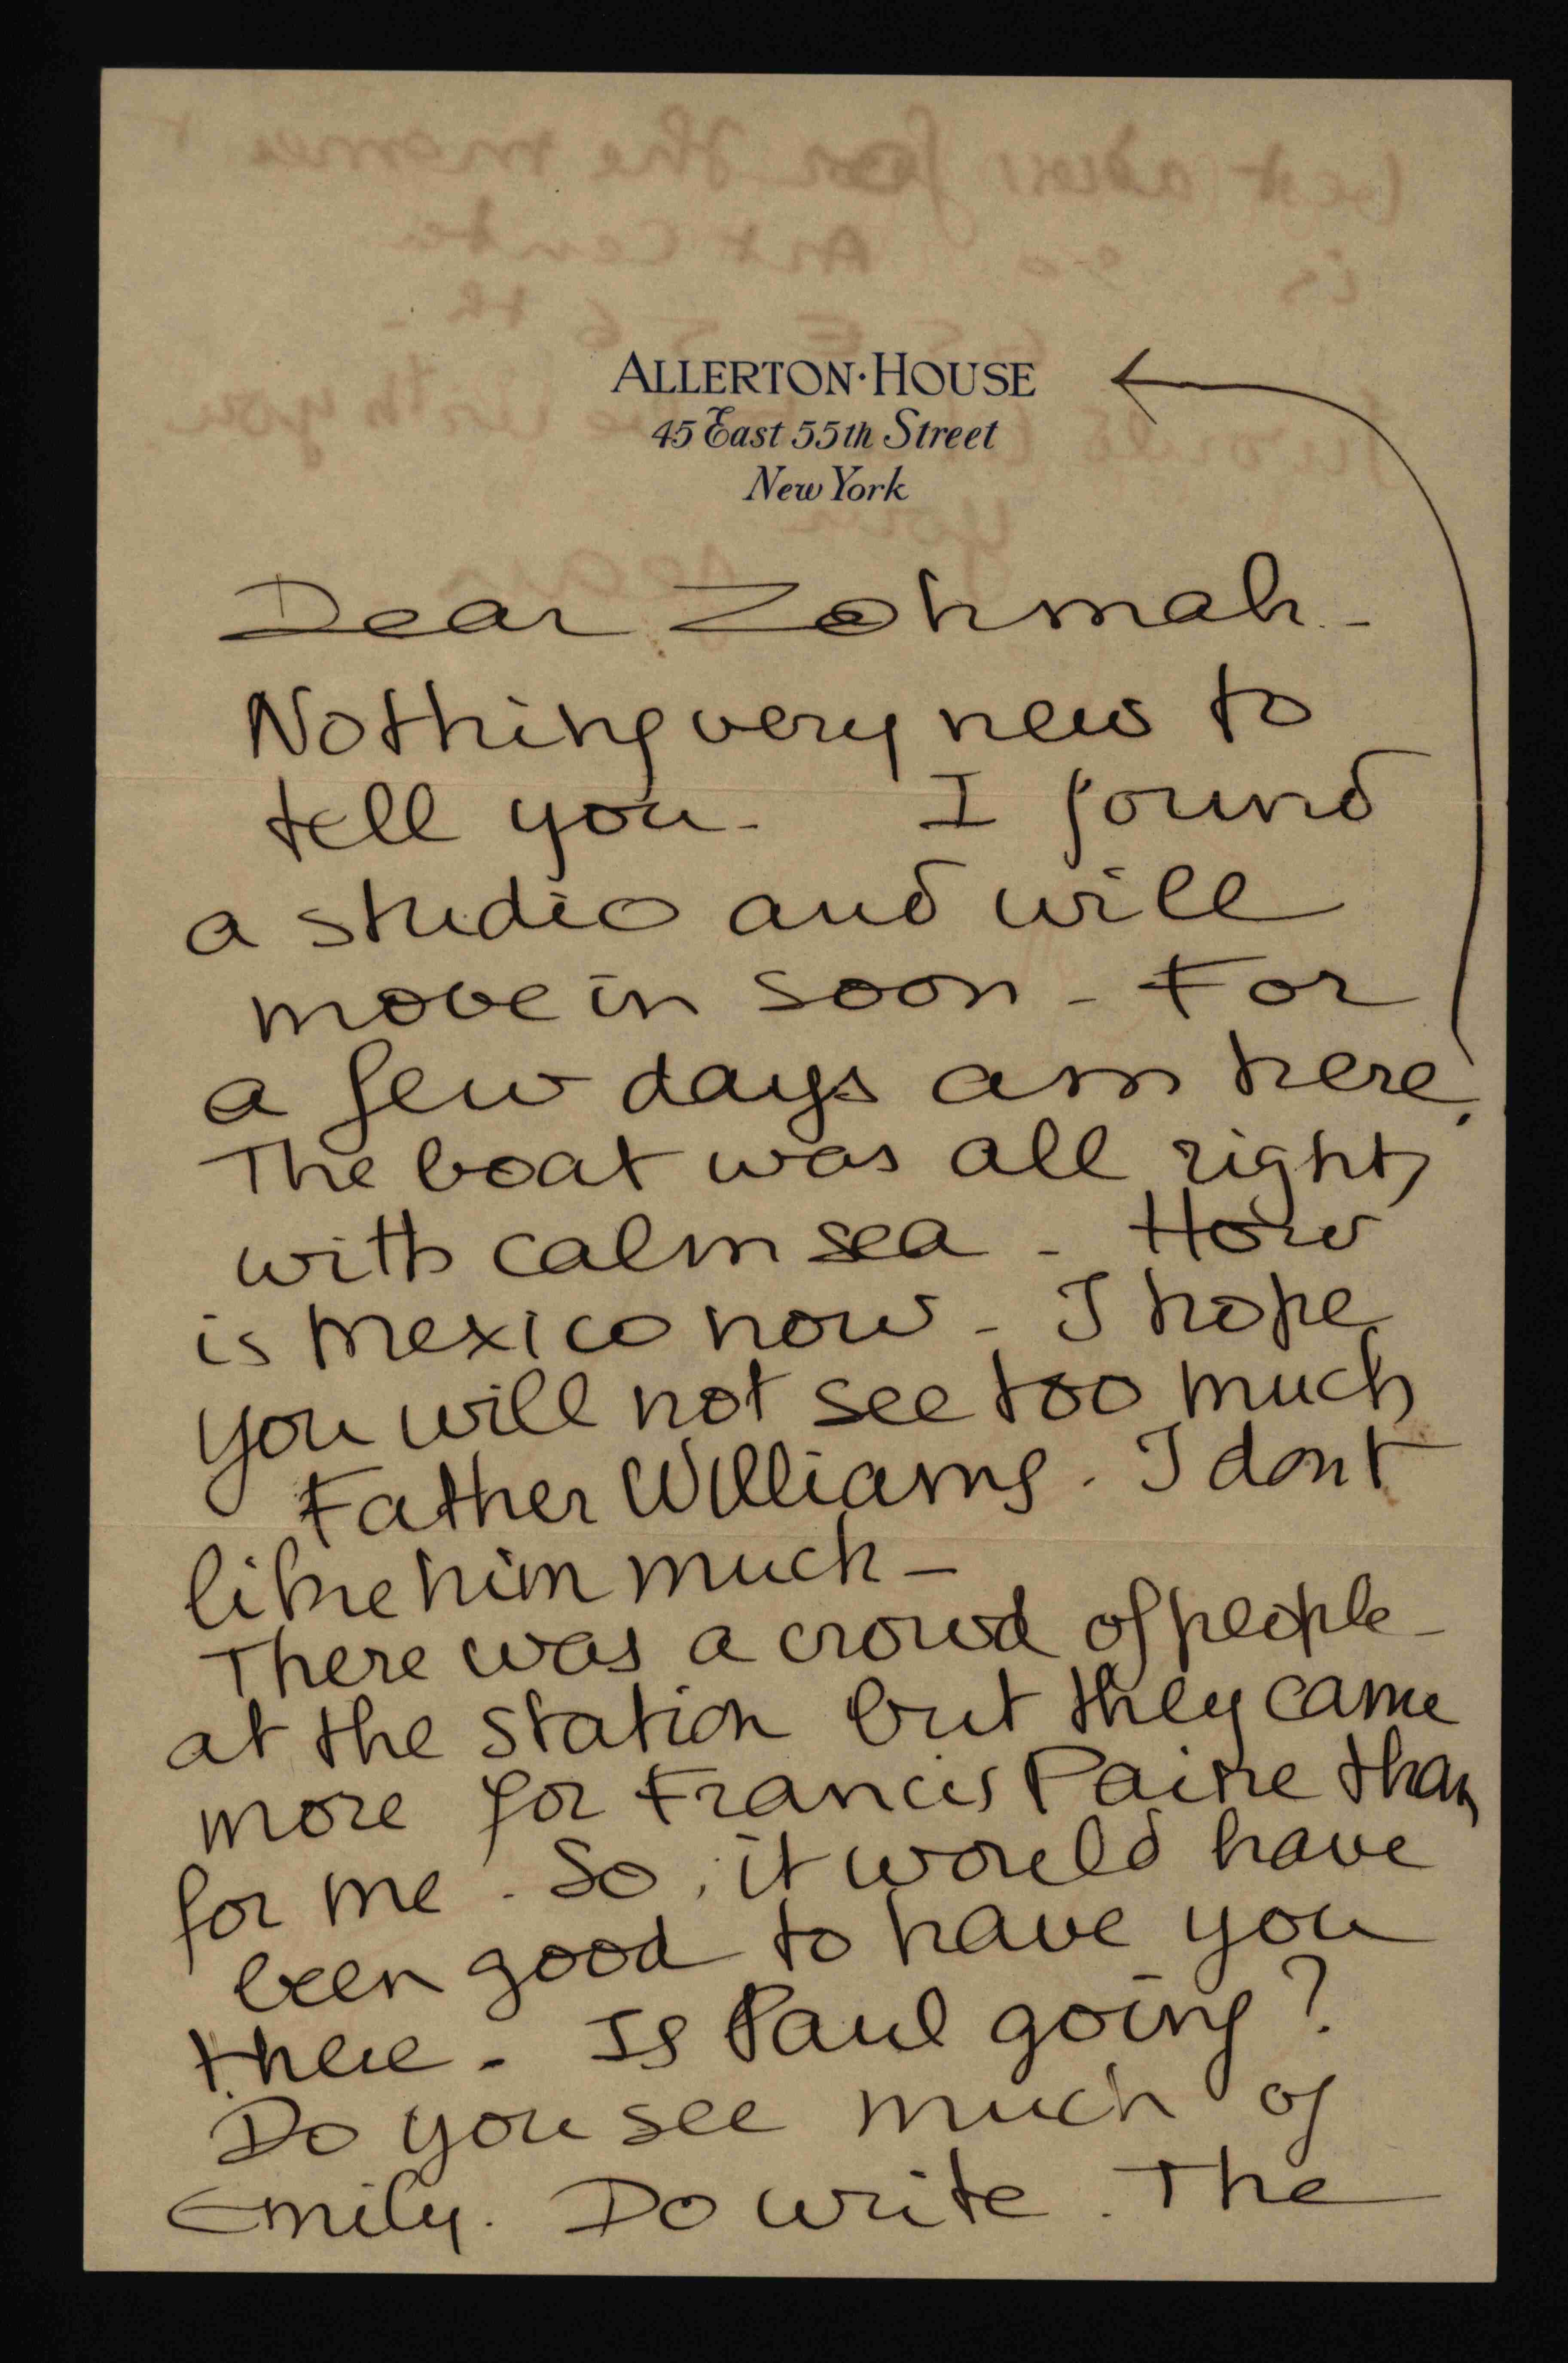 ALLERTON·HOUSE
45 East 55th Street
New York
Dear Zohmah -
Nothing very new to
tell you - I found
a studio and will
move in soon - For
a few days am here.
The boat was all right,
with calm sea - How
is Mexico now - I hope
you will not see too much
Father Williams. I dont
like him much -
There was a crowd of people
at the station but they came
more for Francis Paine than
for me. So, it would have
been good to have you
there - Is Paul going?
Do you see much of
Emily. Do write. The